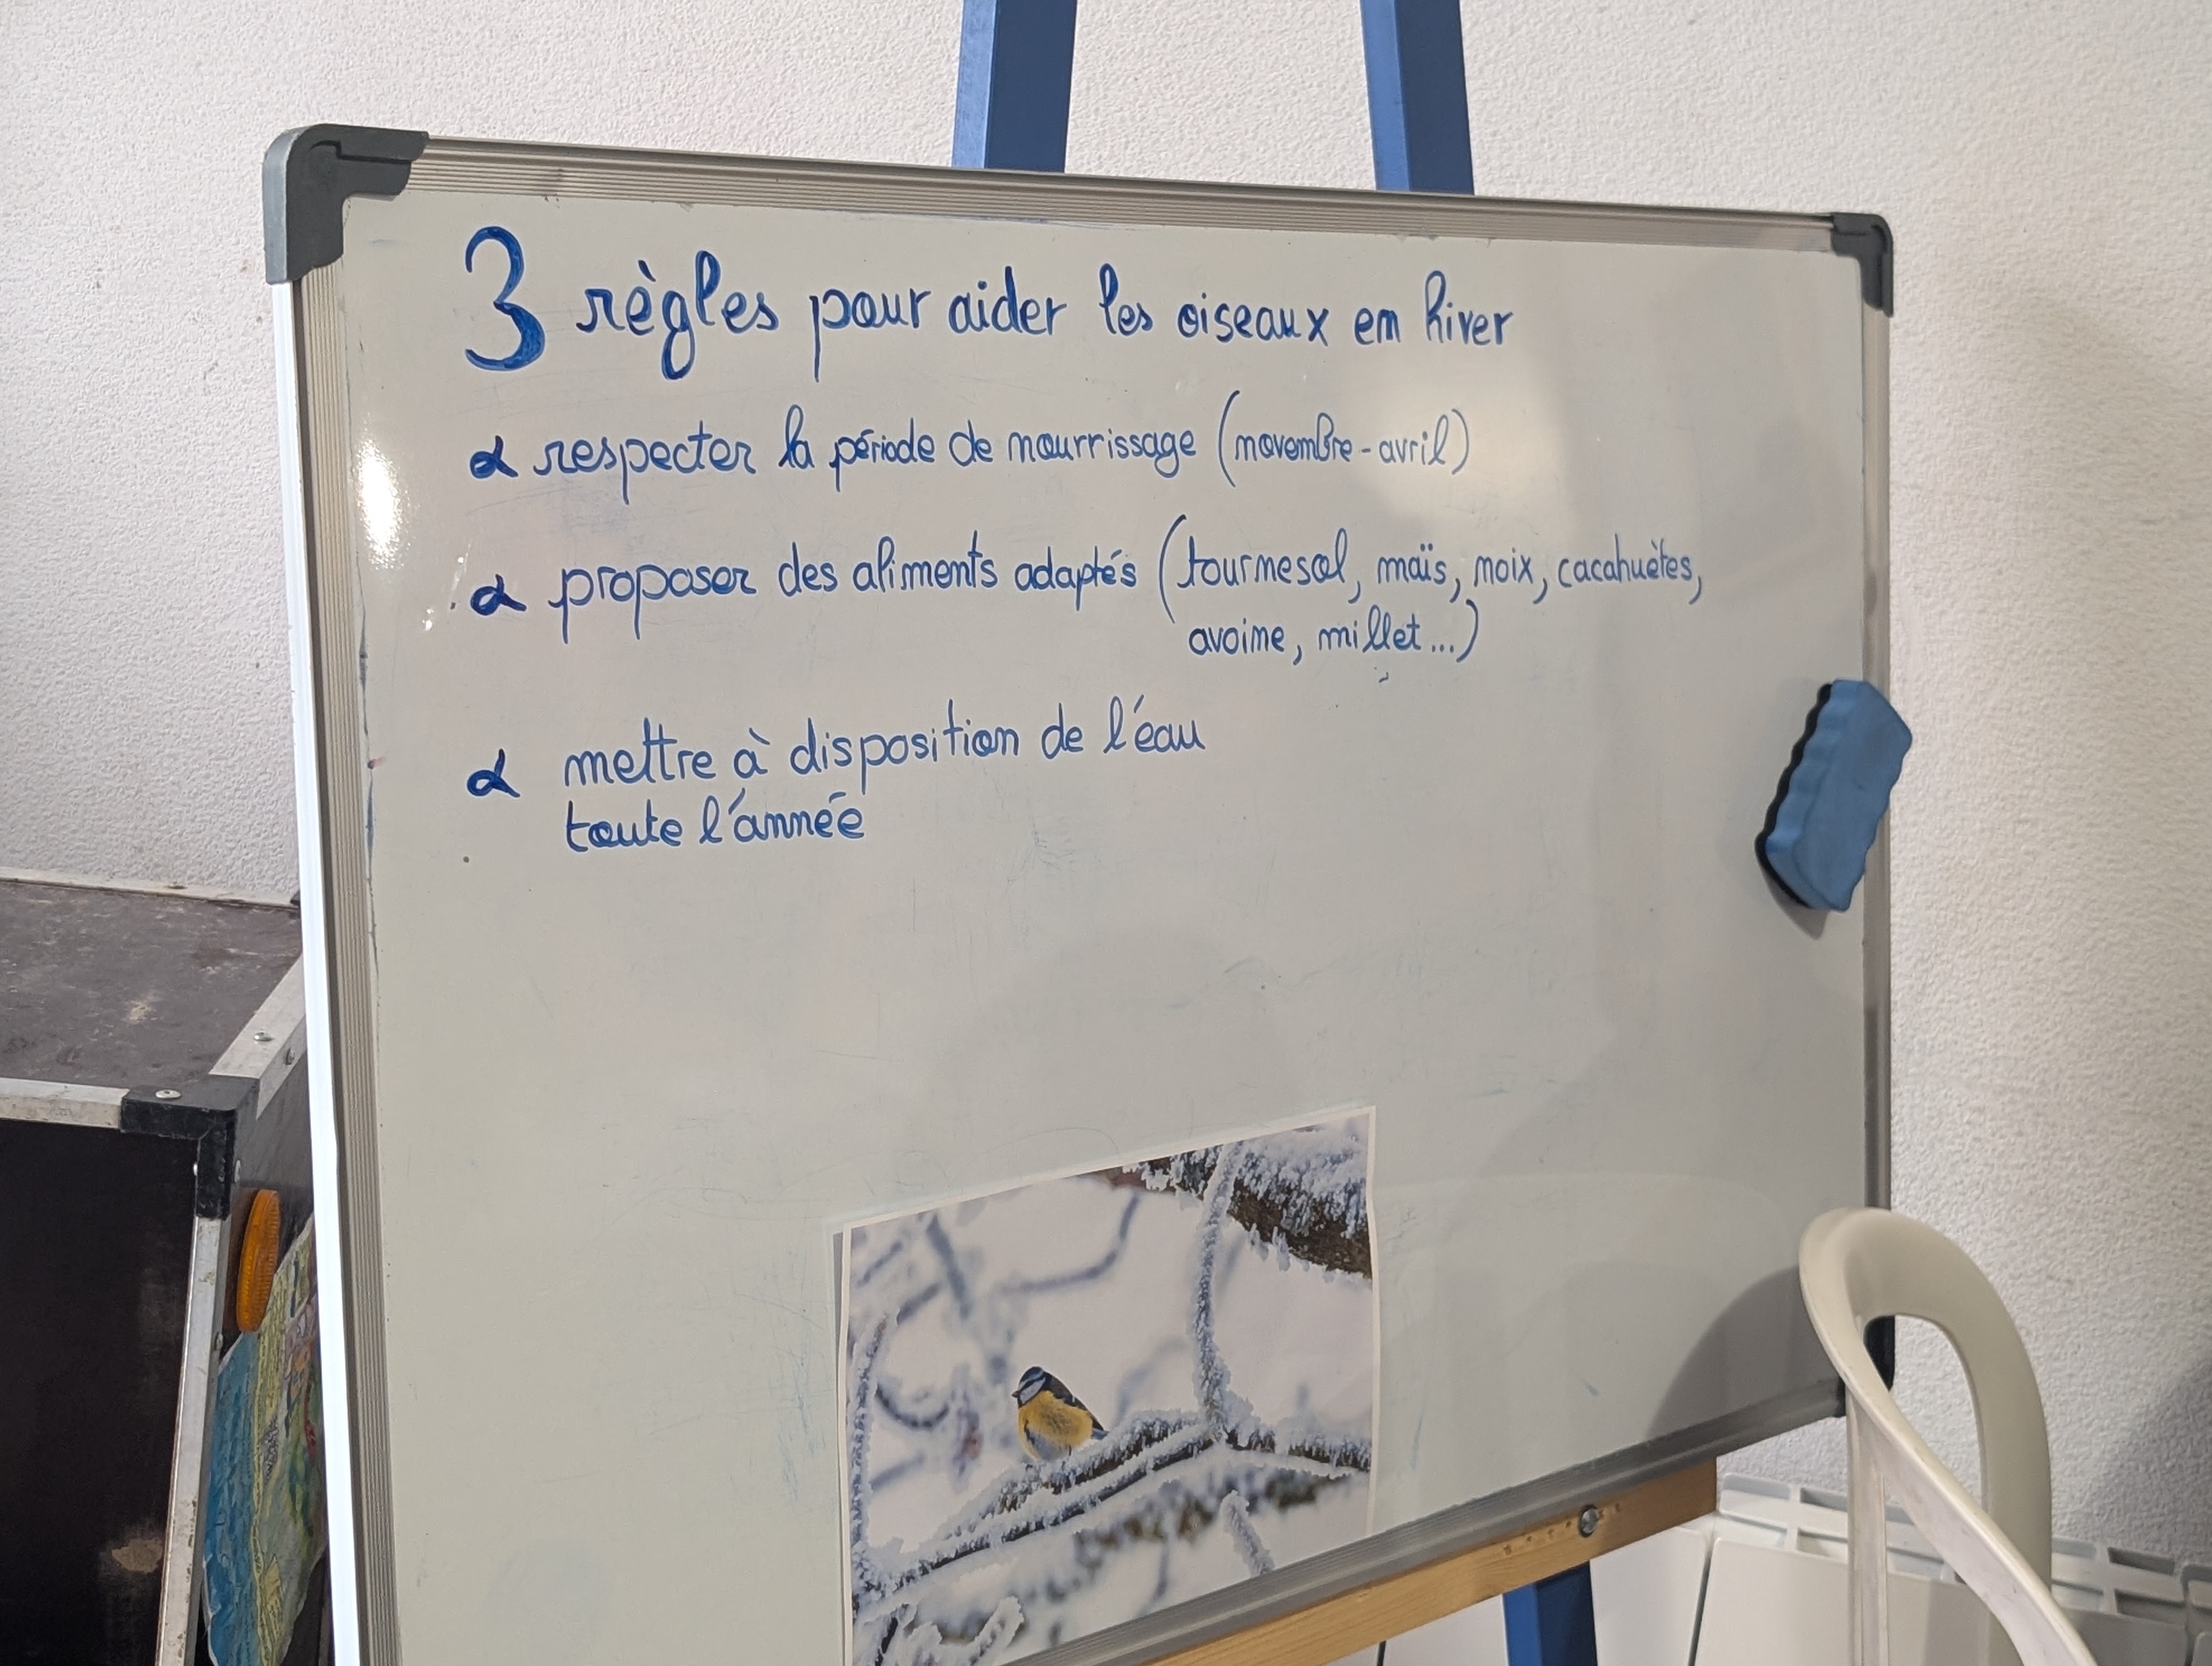 3 règles pour aider les oiseaux en hiver
α respecter la période de nourrissage (novembre-avril)
α proposer des aliments adaptés (tournesol, maïs, noix, cacahuètes,
avoine, millet...)
α mettre à disposition de l'eau
toute l'année